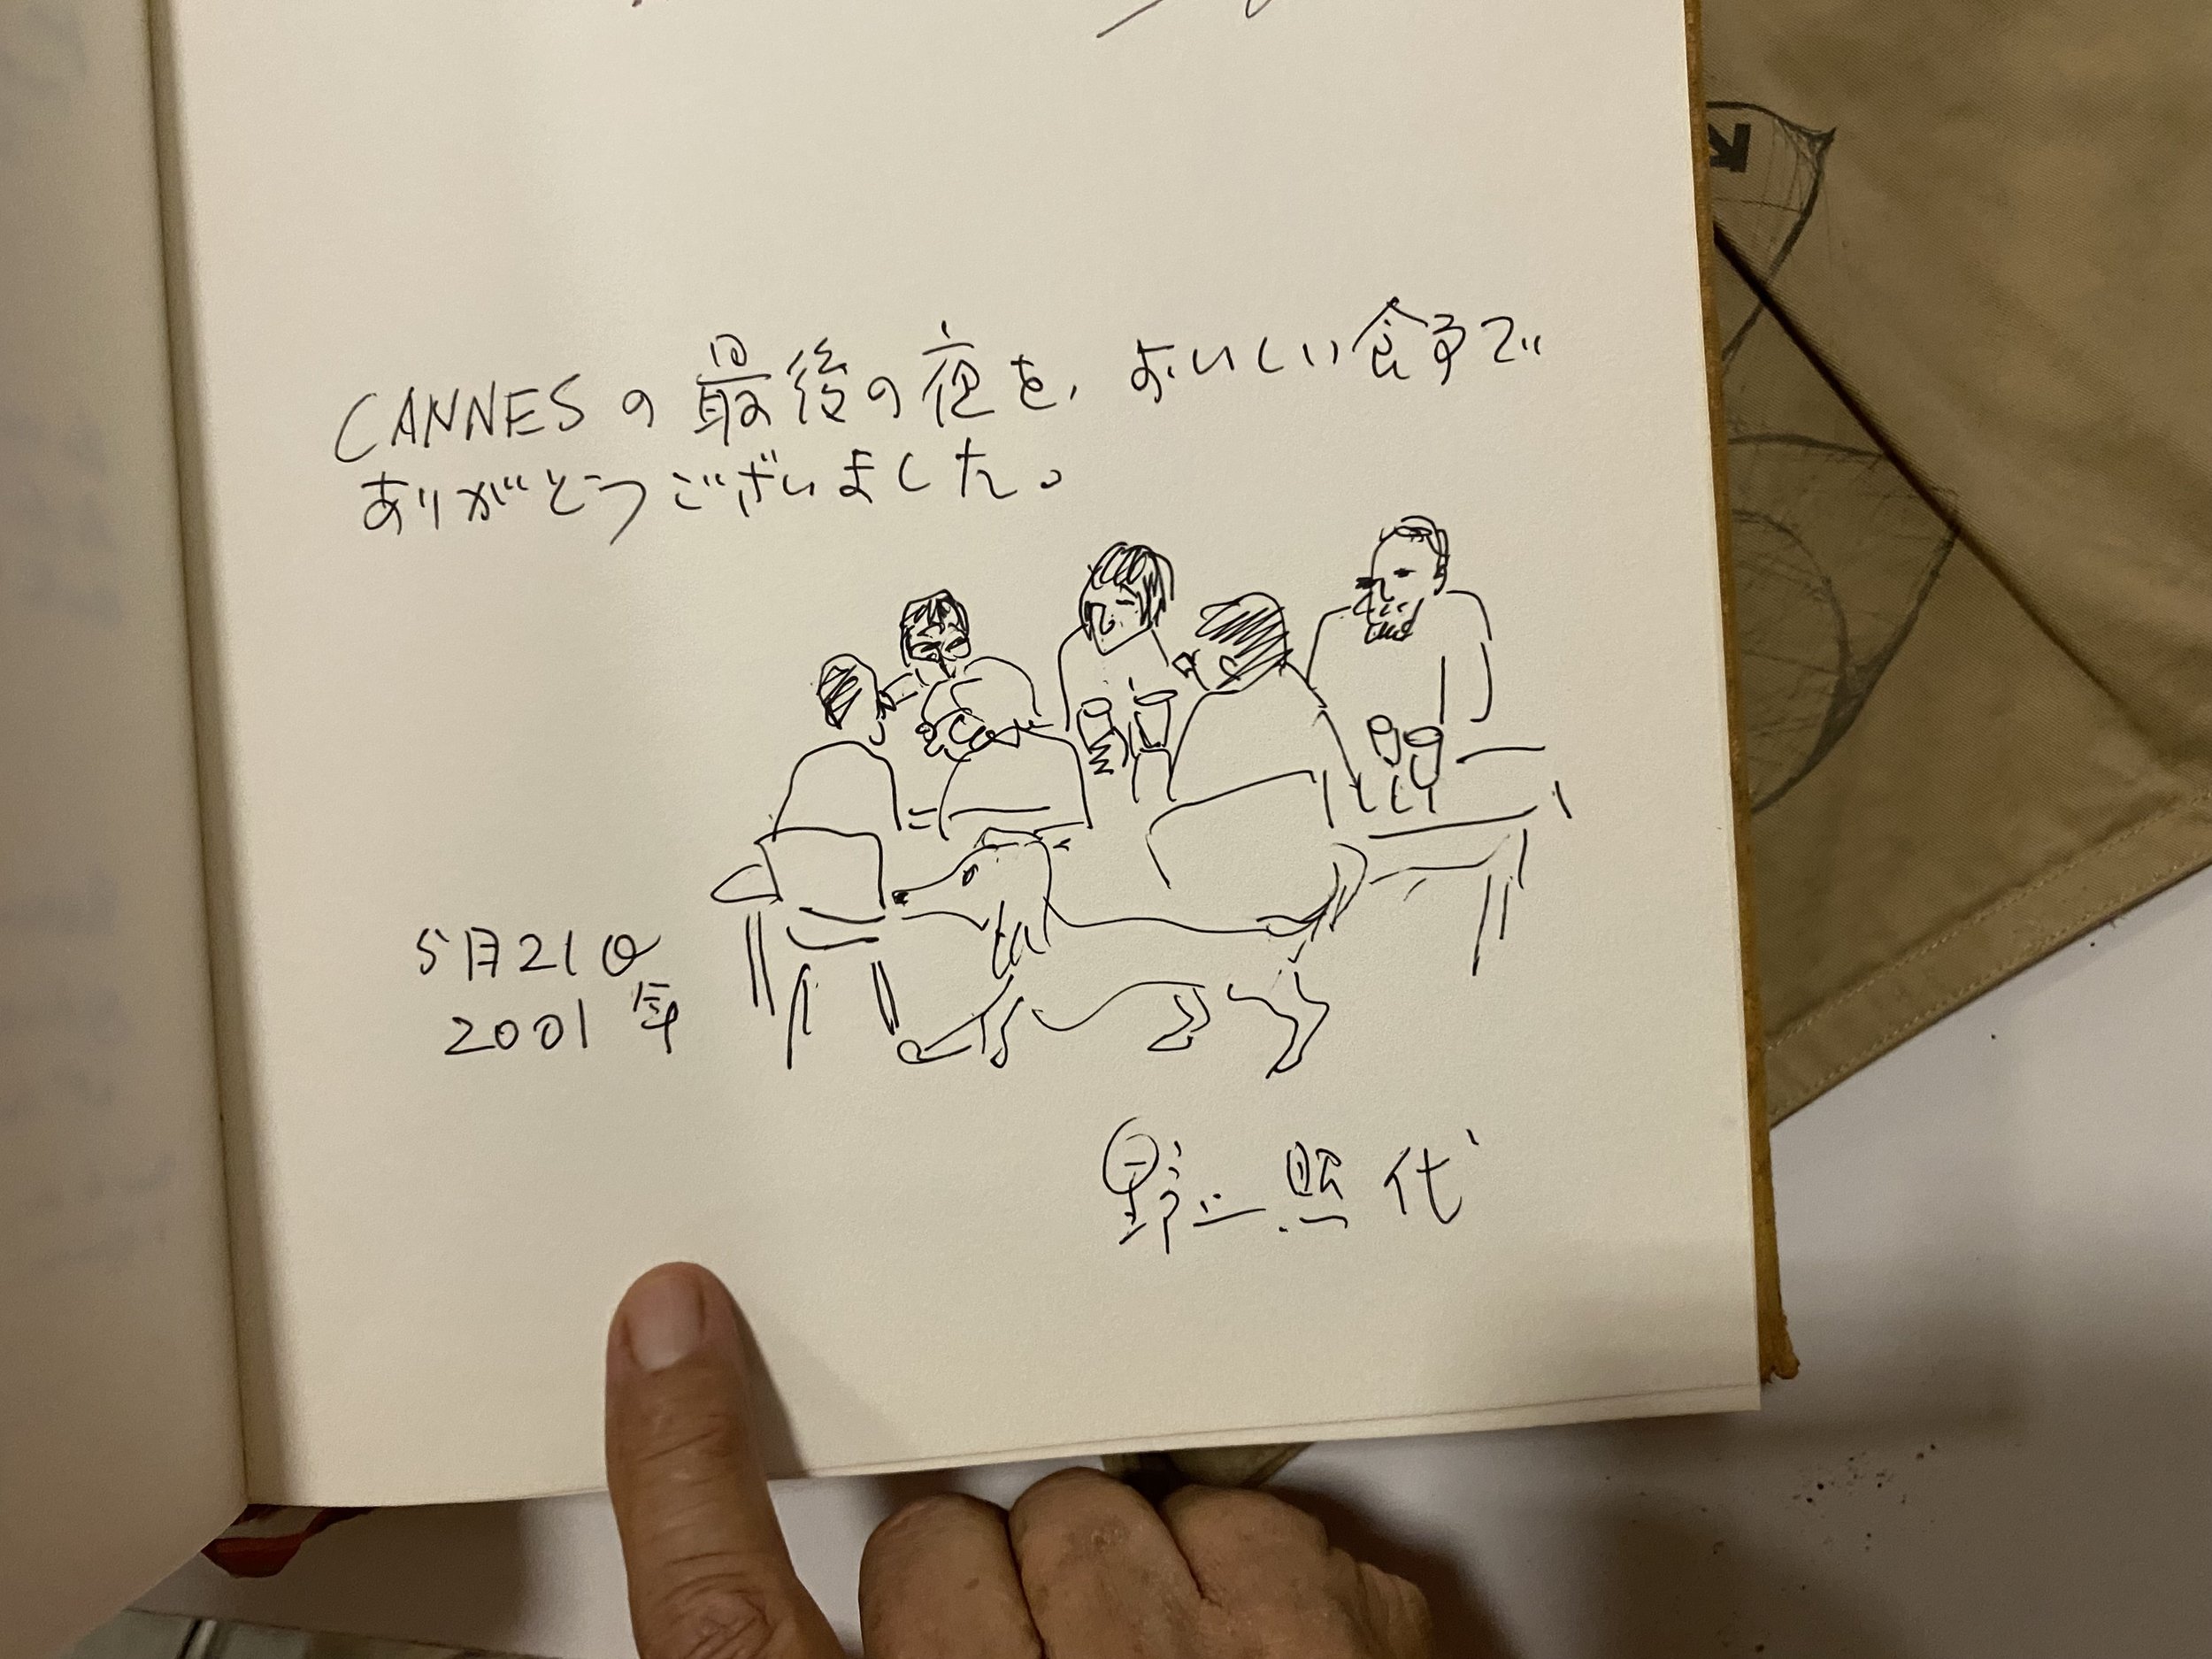 CANNESの最後の夜を、おいしい食事で
ありがとうございました。
5月21日
2001年
野上照代